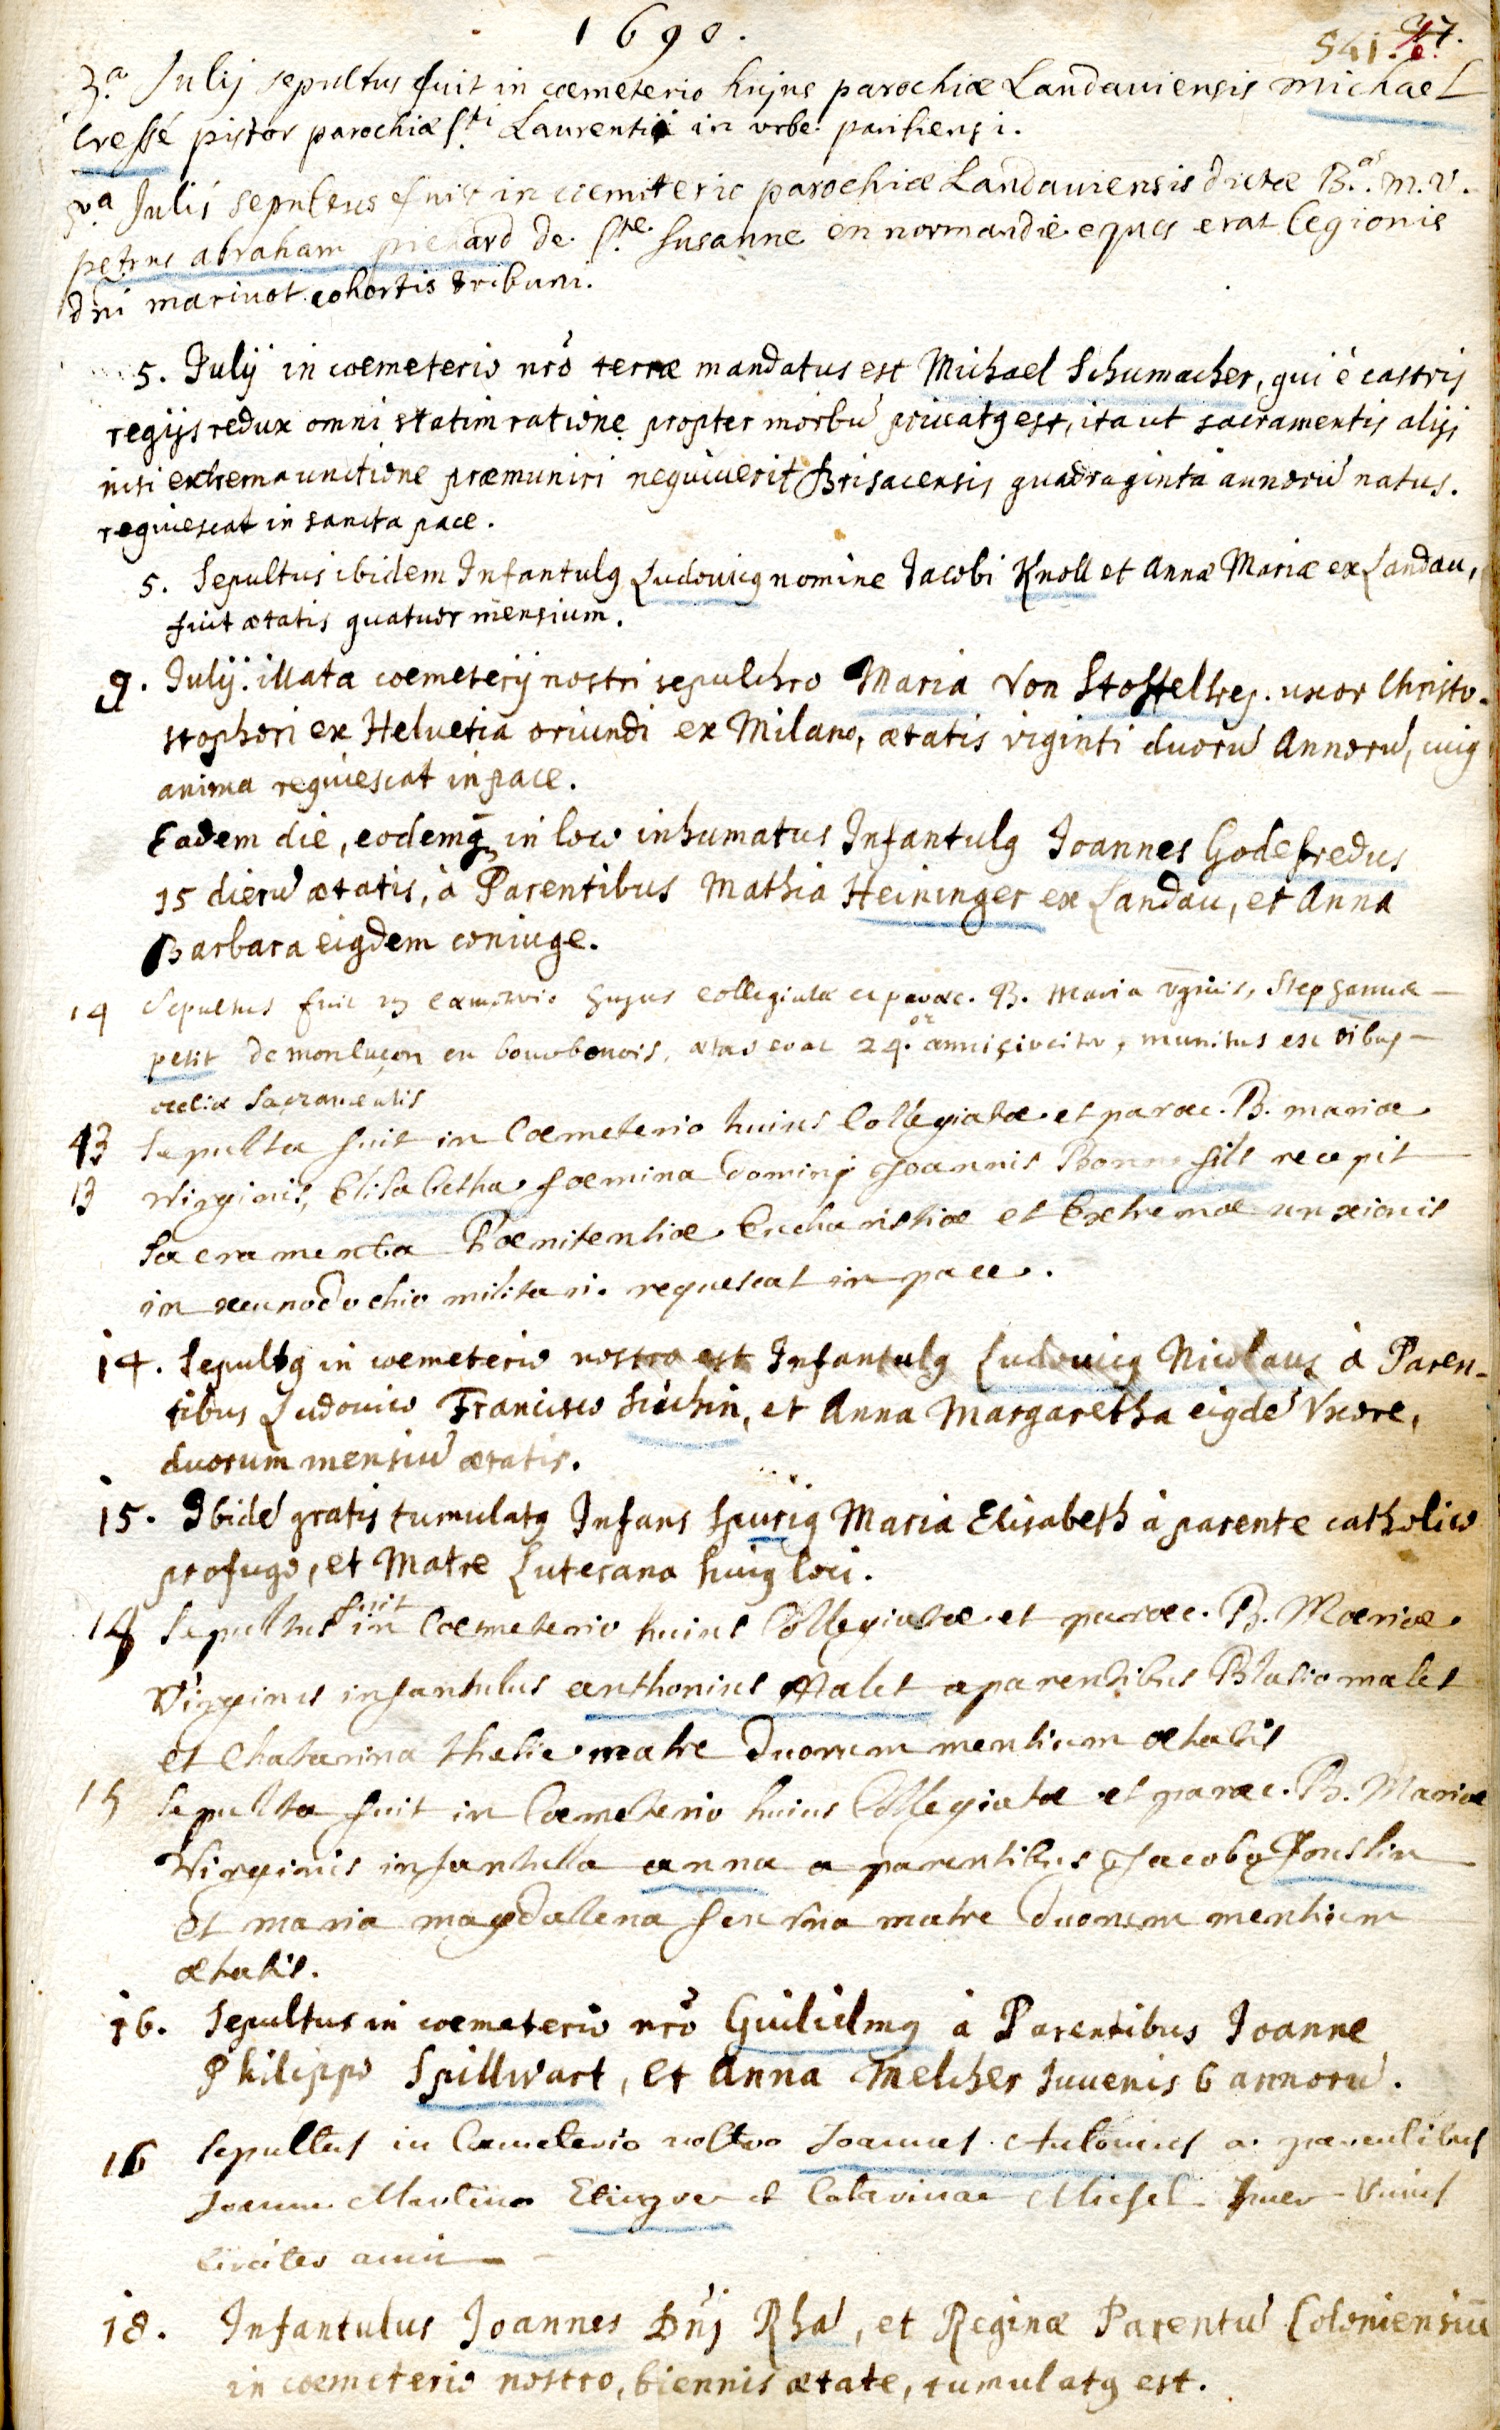 1690.
541. 47.
3.a Julij sepultus fuit in cœmeterio hujus parochiæ Landaviensis Michael
Cressé pistor parochiæ S.ti Laurentii in urbe parisiensi.
5.a Julii sepultus fuit in cœmiterio parochiæ Landaviensis dictæ B.æ M. V.
petrus abraham pickard de S.te Susanne en normandie eques erat legionis
dni marivot cohortis tribuni.
5. Julij in cœmeterio nrõ terræ mandatus est Michael Schumacher, qui è castris
regijs redux omni statim ratione propter morbũ privatq est, ita ut sacramentis alijs
nisi extrema unctione præmuniri nequiverit Brisacensis quadraginta annorũ natus.
requiescat in sancta pace.
5. Sepultus ibidem Infantulq Ludovicq nomine Jacobi Knoll et Annæ Mariæ ex Landau,
fuit ætatis quatuor mensium.
9. Julij. illata cœmeterij nostri sepulchro Maria Von Stoffel uxor Christo-
stophori ex Helvetia oriundi ex Milano, ætatis viginti duorũ Annorũ, cuiq
anima requiescat in pace.
Eadem die, eodemq in loco inhumatus Infantulq Joannes Godefredus
15 dierũ ætatis, à Parentibus Mathia Heininger ex Landau, et Anna
Barbara eiqdem coniuge.
14 Sepultus fuit in cæmiterio hujus collegiatæ et paroc. B. Maria vginis, Stephanus
petit de monluçon en bourbonois, ætas erat 24. or anni circiter, munitus est oibus
eccliæ Sacramentis
13 Sepulta fuit in Cœmeterio huius Collegiatæ et paroc. B. mariæ
13 Virginis, Elisabetha fœmina Dominj Joannis Bonnefils recepit
Sacramenta Pœnitentiæ Eucharistiæ et Extremæ unxionis
in xeunodochio militari. requescat in pace.
14. Sepultq in cœmeterio nostro est Infantulq Ludovicq Nicolaus à Paren-
tibus Ludovico Francisco Suchin, et Anna Margaretha eiqdẽ Uxore,
duorum mensiũ ætatis.
15. Ibidẽ gratis tumulatq Infans spuriq Maria Elisabeth à parente catholico
profugo, et Matre Luterana huiq loci.
14 Sepultus fuit in Cœmeterio huius Collegiatæ et paroc. B. Mariæ
Virginis infantulus anthonius Malet a parentibus Blasio malet
et Chatarina matre duorum mentium ætatis
15 Sepulta fuit in Cœmeterio huius Collegiatæ et paroc. B. Mariæ
Virginis infantula anna a parentibus Jacobo Jouslin
et maria magdallena matre duorum mentium
ætatis.
16. Sepultus in cœmeterio nrõ Guilielmq à Parentibus Joanne
Philippo Spillwart, et Anna Melcher Juvenis 6 annorũ.
16 Sepultus in Cæmeterio nostro Joannes Antonius a parentibus
Joanne Martino et Catarinae Michel Puer Unius
circiter anni
18. Infantulus Joannes Dnj Rha, et Reginæ Parentũ Coloniensiũ
in cœmeterio nostro, biennis ætate, tumulatq est.